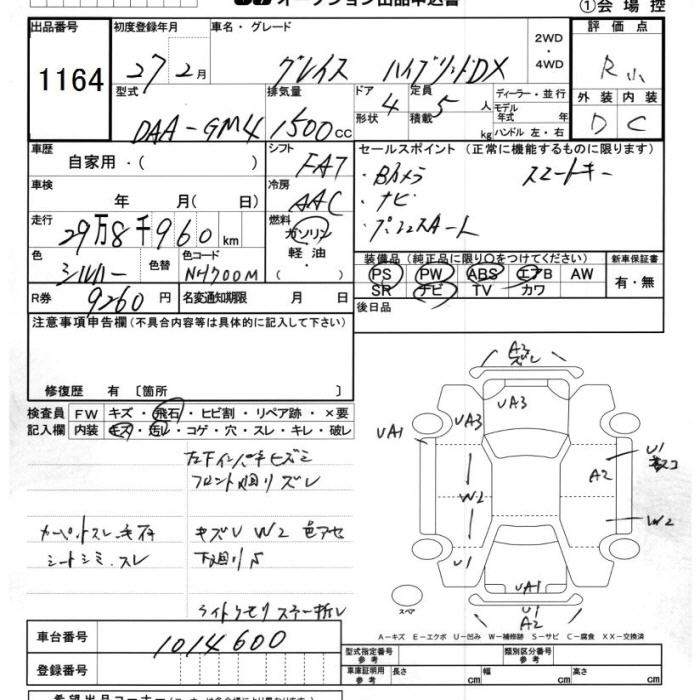 ①会場控
出品番号 初度登録年月 車名・グレード 2WD ・ 4WD 評価点
1164 27年2月 グレイス ハイブリッドDX R小
型式 排気量 ドア 定員 ディーラー・並行 外装 内装
DAA-GM4 1500cc 4 5人 モデル年式 年 D C
形状 積載 kg ハンドル 左・右
車歴 シフト セールスポイント (正常に機能するものに限ります)
自家用・( ) FAT ・Bカメラ スマートキー
車検 冷房 ・ナビ
年 月( 日) AAC ・プッシュスタート
走行 燃料
29万8千960km ガソリン
色 色替 色コード 軽油 装備品(純正品に限り○をつけてください) 新車保証書
シルバー NH700M ・( ) PS PW ABS エアB AW 有・無
R券 9260円 名変通知期限 月 日 SR ナビ TV カワ
注意事項申告欄(不具合内容等は具体的に記入して下さい) 後日品
修復歴 有 〔箇所 〕
検査員 FW キズ・飛石・ヒビ割・リペア跡・×要
記入欄 内装 キズ・汚レ・コゲ・穴・スレ・キレ・破レ
左下インパネヒズミ
フロント廻りズレ
キズU W2 色アセ
シートシミ、スレ 下廻りS
A3
ズレ
UA3
UA3
UA1
U1
A2
W2
W2
U1
UA1
U1
A2
スペア
A-キズ E-エクボ U-凹み W-補修跡 S-サビ C-腐食 XX-交換済
車台番号 1014600
登録番号
型式指定番号 参考 類別区分番号 参考
車庫証明用 参考 長さ cm 幅 cm 高さ cm